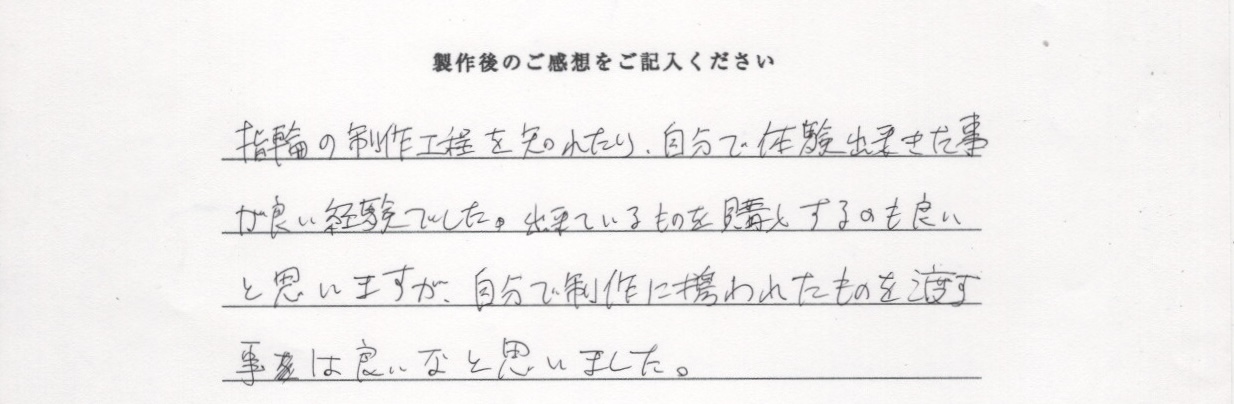 製作後のご感想をご記入ください
指輪の制作工程を知れたり、自分で体験出来た事
が良い経験でした。出来ているものを購入するのも良い
と思いますが、自分で制作に携われたものを渡す
事は良いなと思いました。